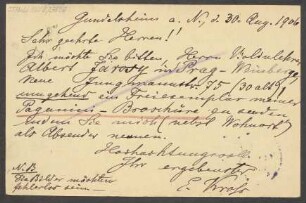 Gundelsheim a. N., d. 30. Aug. 1906
Sehr geehrte Herren!!
Ich möchte Sie bitten, Herrn
Albert Jarosy in Prag - Weinberge
Neue 75 - 30 alt!
umgehend ein Freiexemplar meiner
Paganini - Broschüre zu senden
indem Sie mich nebst Wohnort
als Absender nennen.
Hochachtungsvoll
Ihr ergebenster
E.
N.B.
Die Bilder möchten
fehlerlos sein